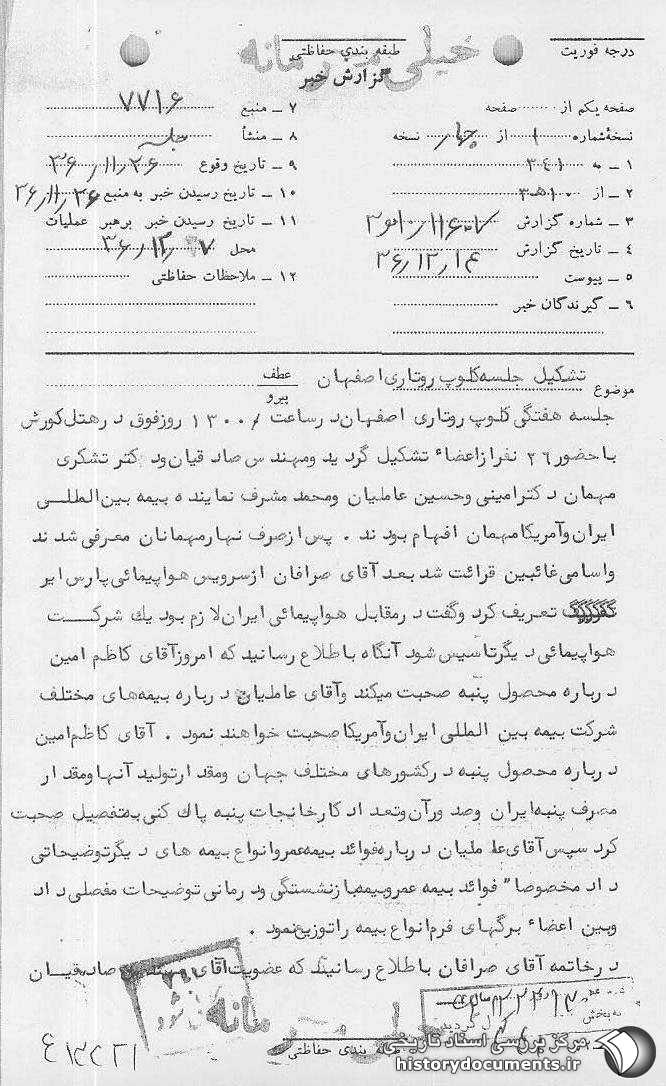 خیلی محرمانه
درجه فوریت
طبقه بندی حفاظتی
گزارش خبر
صفحه یکم از صفحه
نسخه شماره ۱ از چهار نسخه
۱ ـ به ۳٤۱
۲ ـ از ۱۰ه۳
۳ ـ شماره گزارش
٤ ـ تاریخ گزارش ۳۶/۱۲/۱۴
۵ ـ پیوست
۶ ـ گیرندگان خبر
۷ ـ منبع ۷۷۱۶
۸ ـ منشأ جلسه
۹ ـ تاریخ وقوع ۳۶/۱۱/۲۶
۱۰ ـ تاریخ رسیدن خبر به منبع ۳۶/۱۱/۲۶
۱۱ ـ تاریخ رسیدن خبر برهبر عملیات
محل ۳۶/۱۲/۷
۱۲ ـ ملاحظات حفاظتی
موضوع تشکیل جلسه کلوپ روتاری اصفهان
عطف
پیرو
جلسه هفتگی کلوپ روتاری اصفهان در ساعت ۱۳۰۰ روز فوق در هتل کورش
با حضور ۲۶ نفر از اعضاء تشکیل گردید و مهندس صادقیان و دکتر تشکری
مهمان دکتر امینی و حسین عاملیان و محمد مشرف نماینده بیمه بین المللی
ایران و آمریکا مهمان افهام بودند . پس از صرف نهار مهمانان معرفی شدند
و اسامی غائبین قرائت شد بعد آقای صرافان از سرویس هواپیمائی پارس ایر
تعریف کرد و گفت در مقابل هواپیمائی ایران لازم بود یك شرکت
هواپیمائی دیگر تاسیس شود آنگاه باطلاع رسانید که امروز آقای کاظم امین
درباره محصول پنبه صحبت میکند و آقای عاملیان درباره بیمه های مختلف
شرکت بیمه بین المللی ایران و آمریکا صحبت خواهند نمود . آقای کاظم امین
درباره محصول پنبه در کشورهای مختلف جهان و مقدار تولید آنها و مقدار
مصرف پنبه ایران و صدور آن و تعداد کارخانجات پنبه پاك کنی به تفصیل صحبت
کرد سپس آقای عاملیان درباره فوائد بیمه عمر و انواع بیمه های دیگر توضیحاتی
داد مخصوصا" فوائد بیمه عمر و بیمه بازنشستگی و درمانی توضیحات مفصلی داد
و بین اعضاء برگهای فرم انواع بیمه را توزیع نمود .
در خاتمه آقای صرافان باطلاع رسانید که عضویت آقای مهندس صادقیان
خیلی محرمانه
طبقه بندی حفاظتی
مرکز بررسی اسناد تاریخی
historydocuments.ir